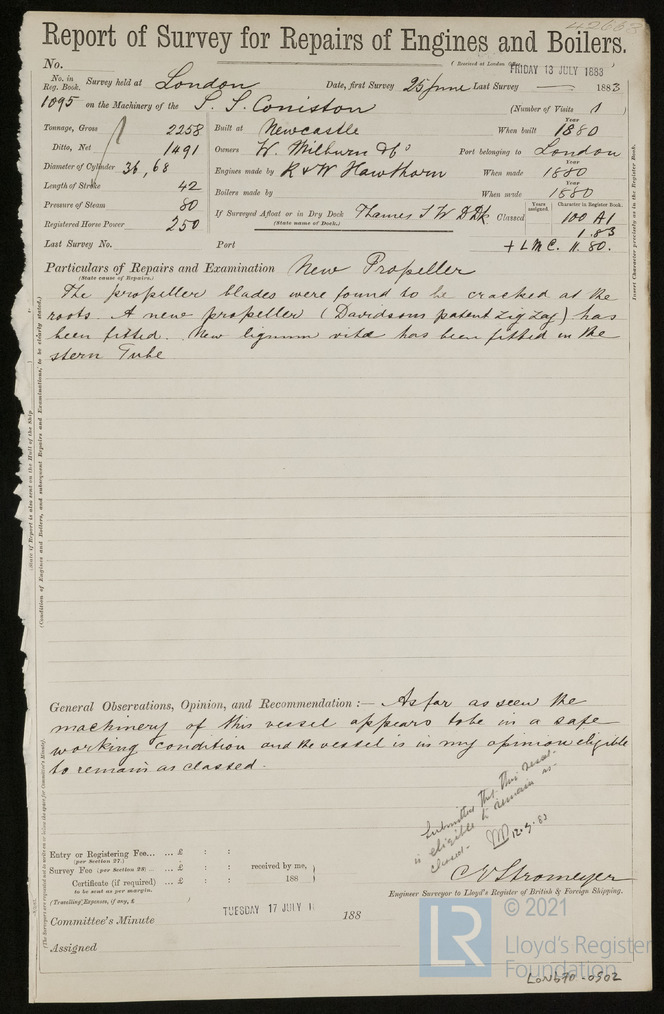 42663
Report of Survey for Repairs of Engines and Boilers.
No. (Received at London Office FRIDAY 13 JULY 1883
No. in Reg. Book. Survey held at London Date, first Survey 25 June Last Survey — 1883
1095 on the Machinery of the S. S. Coniston (Number of Visits 1)
Tonnage, Gross 2258 Built at Newcastle When built Year 1880
Ditto, Net 1491 Owners W. Milburn & Co Port belonging to London
Diameter of Cylinder 36, 68 Engines made by R & W Hawthorn When made Year 1880
Length of Stroke 42 Boilers made by When made Year 1880
Pressure of Steam 80 If Surveyed Afloat or in Dry Dock Thames I W D Dk Classed Years assigned. Character in Register Book. 100 A1
(State name of Dock.) 1.83
Registered Horse Power 250
Last Survey No. Port + L M C. 11. 80.
Particulars of Repairs and Examination New Propeller
(State cause of Repairs.)
The propeller blades were found to be cracked at the
roots. A new propeller (Davidsons patent Zig Zag) has
been fitted. New lignum vitæ has been fitted in the
stern Tube
General Observations, Opinion, and Recommendation :— As far as seen the
machinery of this vessel appears to be in a safe
working condition and the vessel is in my opinion eligible
to remain as classed.
Submitted that this vessel
is eligible to remain as
classed—
12.7.83
Entry or Registering Fee... ... £ : :
(per Section 27.)
Survey Fee (per Section 28) ... £ : : received by me,
Certificate (if required) ... £ : : 188
to be sent as per margin.
(Travelling Expenses, if any, £ )
C E Stromeyer
Engineer Surveyor to Lloyd's Register of British & Foreign Shipping.
TUESDAY 17 JULY 18
Committee's Minute 188
Assigned
Insert Character precisely as in the Register Book.
(State if Report is also sent on the Hull of the Ship
(Condition of Engines and Boilers, and subsequent Repairs and Examinations, to be clearly stated.)
(The Surveyors are requested not to write on or below the space for Committee's Minute)
LR
© 2021
Lloyd's Register
Foundation
LON690-0502